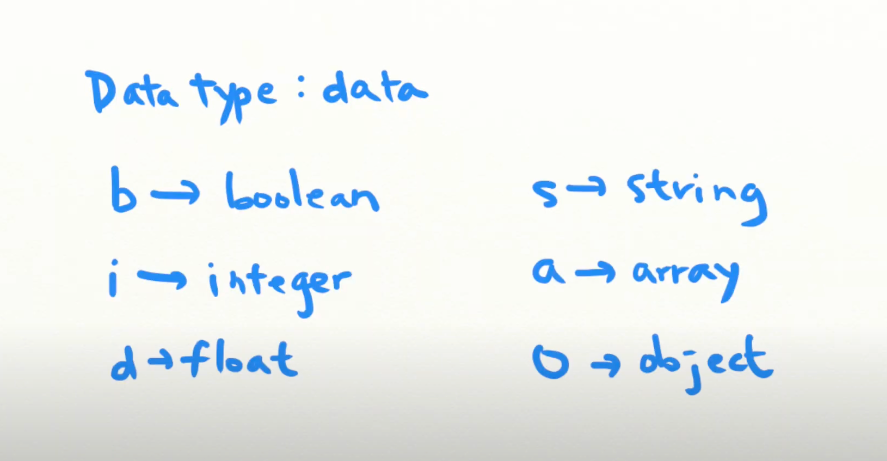 Data type : data
b → boolean
i → integer
d → float
s → string
a → array
O → object